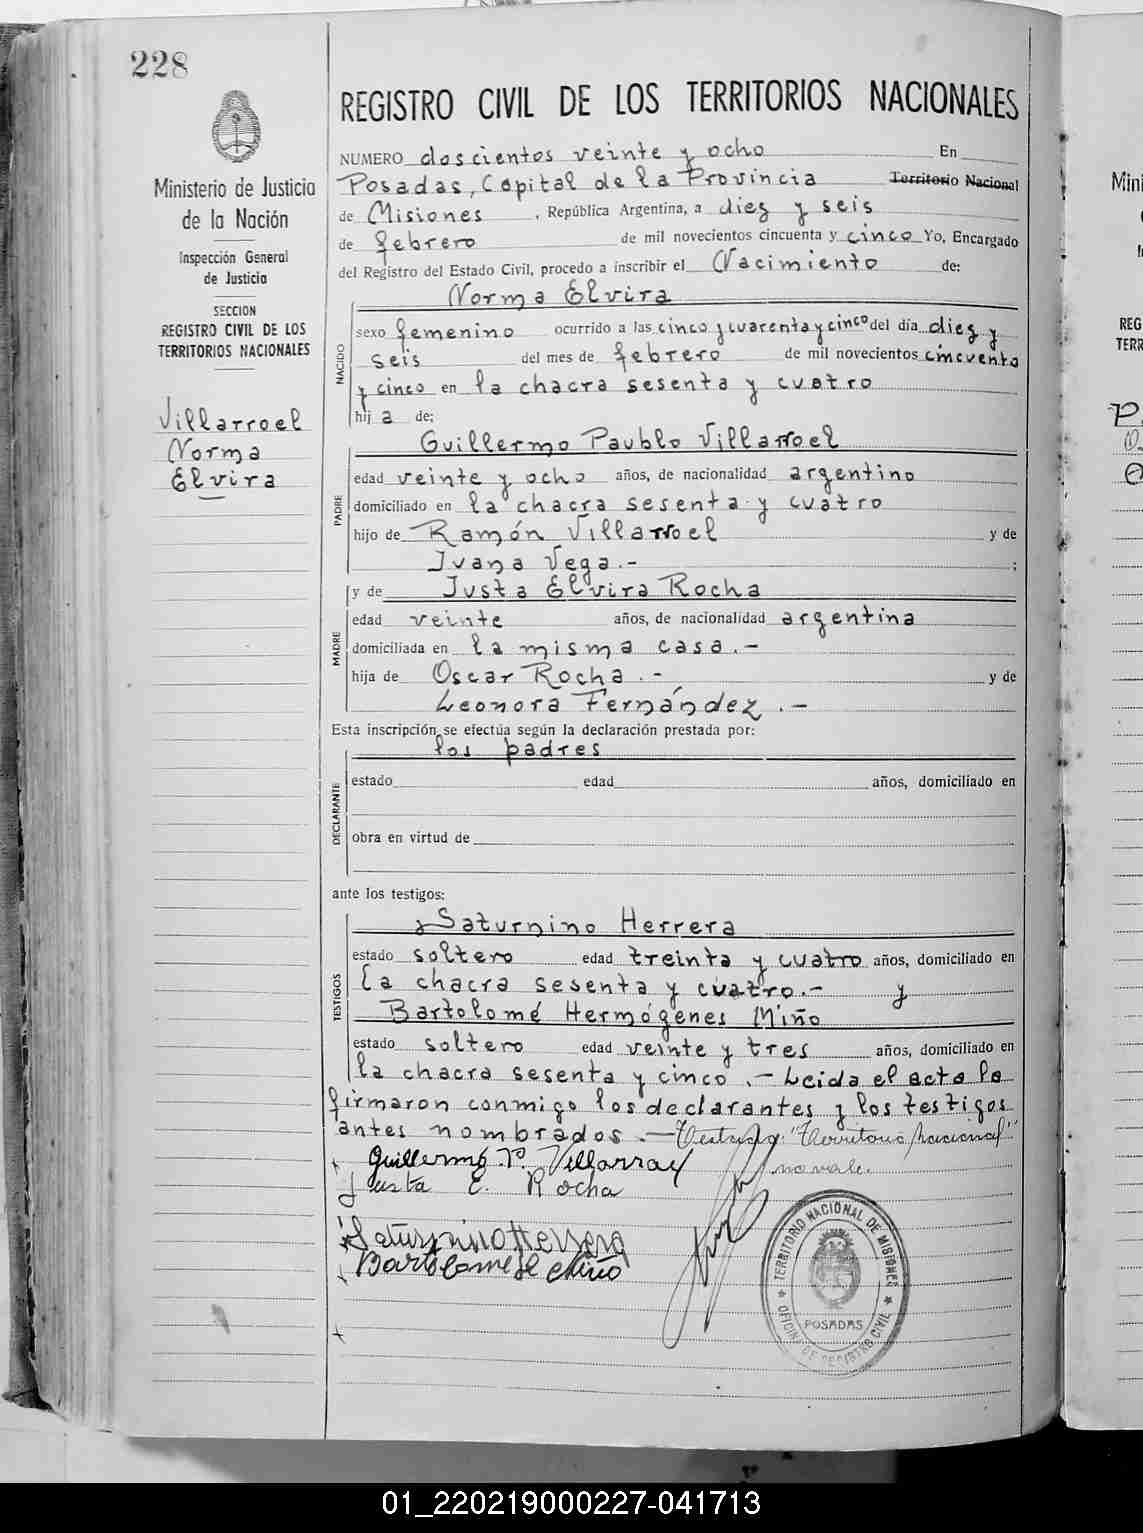 228
Ministerio de Justicia
de la Nación
Inspección General
de Justicia
SECCION
REGISTRO CIVIL DE LOS
TERRITORIOS NACIONALES
Villarroel
Norma
Elvira
REGISTRO CIVIL DE LOS TERRITORIOS NACIONALES
NUMERO doscientos veinte y ocho En
Posadas, Capital de la Provincia Territorio Nacional
de Misiones, República Argentina, a diez y seis
de febrero de mil novecientos cincuenta y cinco Yo, Encargado
del Registro del Estado Civil, procedo a inscribir el Nacimiento de:
Norma Elvira
NACIDO
sexo femenino ocurrido a las cinco y cuarenta y cinco del día diez y
seis del mes de febrero de mil novecientos cincuenta
y cinco en la chacra sesenta y cuatro
hija de:
Guillermo Paublo Villarroel
PADRE
edad veinte y ocho años, de nacionalidad argentino
domiciliado en la chacra sesenta y cuatro
hijo de Ramón Villarroel y de
Juana Vega.- ;
y de Justa Elvira Rocha
MADRE
edad veinte años, de nacionalidad argentina
domiciliada en la misma casa.-
hija de Oscar Rocha.- y de
Leonora Fernández.-
Esta inscripción se efectúa según la declaración prestada por:
los padres
DECLARANTE
estado edad años, domiciliado en
obra en virtud de
ante los testigos:
Saturnino Herrera
TESTIGOS
estado soltero edad treinta y cuatro años, domiciliado en
la chacra sesenta y cuatro.- y
Bartolomé Hermógenes Miño
estado soltero edad veinte y tres años, domiciliado en
la chacra sesenta y cinco.- Leida el acta la
firmaron conmigo los declarantes y los testigos
antes nombrados.- Testado: "Territorio Nacional"
no vale.
Guillermo P. Villarroel
Justa E. Rocha
Saturnino Herrera
Bartolome H Miño
TERRITORIO NACIONAL DE MISIONES
POSADAS
OFICINA DE REGISTRO CIVIL
Mini
REG
TERR
01_220219000227-041713